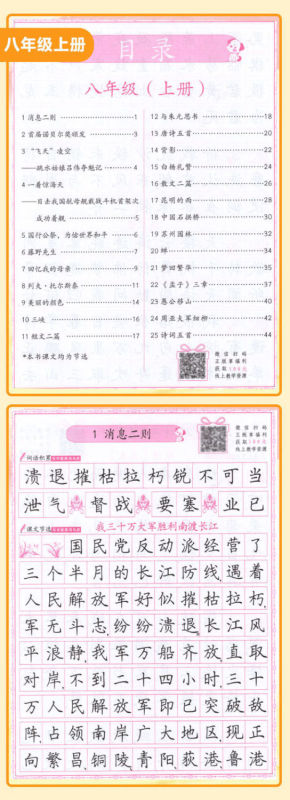 八年级上册
目录
八年级（上册）
1 消息二则 1
2 首届诺贝尔奖颁发 3
3 “飞天”凌空
——跳水姑娘吕伟夺魁记 4
4 一着惊海天
——目击我国航母舰载战斗机首架次
成功着舰 5
5 国行公祭，为佑世界和平 6
6 藤野先生 7
7 回忆我的母亲 9
8 列夫·托尔斯泰 11
9 美丽的颜色 14
10 三峡 16
11 短文二篇 17
*本书课文均为节选
12 与朱元思书 18
13 唐诗五首 20
14 背影 22
15 白杨礼赞 24
16 散文二篇 26
17 昆明的雨 28
18 中国石拱桥 30
19 苏州园林 32
20 蝉 34
21 梦回繁华 35
22 《孟子》三章 37
23 愚公移山 40
24 周亚夫军细柳 42
25 诗词五首 44
微信扫码
正版幸福利
线上教学资源
1 消息二则
词语积累
溃退摧枯拉朽锐不可当
泄气 督战 要塞 业已
课文节选
我三十万大军胜利南渡长江
国民党反动派经营了
三个半月的长江防线,遇着
人民解放军好似摧枯拉朽,
军无斗志,纷纷溃退。长江风
平浪静,我军万船齐放,直取
对岸,不到二十四小时,三十
万人民解放军即已突破敌
阵,占领南岸广大地区,现正
向繁昌、铜陵、青阳、荻港、鲁港